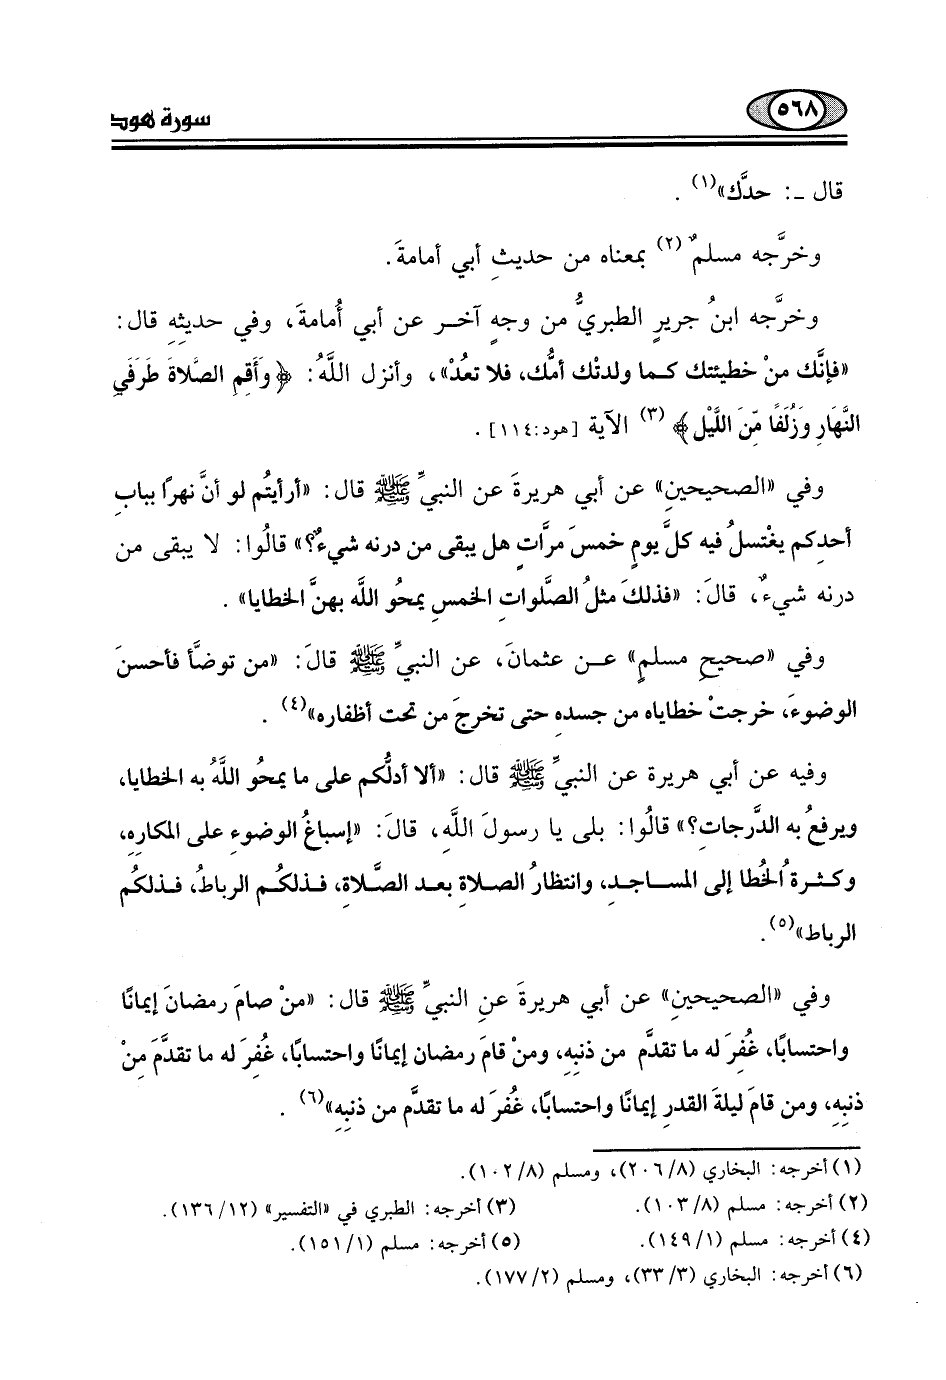 ٥٦٨
سورة هود
قال ـ: حدَّك»(١) .
وخرَّجه مسلمٌ(٢) بمعناه من حديثِ أبي أمامةَ.
وخرَّجه ابنُ جريرٍ الطبريُّ من وجهٍ آخر عن أبي أُمامةَ، وفي حديثِهِ قال:
«فإنَّك منْ خطيئتك كما ولدتْك أمُّك، فلا تعدْ»، وأنزل اللَّهُ: ﴿وَأَقِمِ الصَّلاةَ طَرَفَيِ
النَّهَارِ وَزُلَفًا مِّنَ اللَّيْلِ﴾ (٣) الآية [هود:١١٤] .
وفي «الصحيحينِ» عن أبي هريرةَ عن النبيِّ ﷺ قال: «أرأيتُم لو أنَّ نهرًا ببابِ
أحدِكم يغْتسلُ فيه كلَّ يومٍ خمسَ مرَّاتٍ هل يبقى من درنه شيءٌ؟» قالُوا: لا يبقى من
درنه شيءٌ، قالَ: «فذلكَ مثلُ الصَّلواتِ الخمسِ يمحُو اللَّه بهنَّ الخطايا» .
وفي «صحيحِ مسلمٍ» عن عثمانَ، عن النبيِّ ﷺ قالَ: «من توضَّأ فأحسنَ
الوضوءَ، خرجتْ خطاياه من جسدِه حتى تخرجَ من تحت أظفاره»(٤) .
وفيه عن أبي هريرة عن النبيِّ ﷺ قال: «ألا أدلُّكم على ما يمحُو اللَّهُ به الخطايا،
ويرفعُ به الدَّرجاتِ؟» قالُوا: بلى يا رسولَ اللَّهِ، قالَ: «إسباغُ الوضوءِ على المكارِهِ،
وكثرةُ الخُطا إلى المساجدِ، وانتظارُ الصلاةِ بعد الصَّلاةِ، فذلكُم الرباطُ، فذلكُم
الرباط»(٥).
وفي «الصحيحينِ» عن أبي هريرةَ عنِ النبيِّ ﷺ قال: «منْ صامَ رمضانَ إيمانًا
واحتسابًا، غُفِرَ له ما تقدَّم من ذنبِهِ، ومنْ قامَ رمضان إيمانًا واحتسابًا، غُفِرَ له ما تقدَّمَ مِنْ
ذنبِهِ، ومن قامَ ليلةَ القدرِ إيمانًا واحتسابًا، غُفرَ له ما تقدَّم من ذنبِهِ»(٦) .
(١) أخرجه: البخاري (٢٠٦/٨)، ومسلم (١٠٢/٨).
(٢) أخرجه: مسلم (١٠٣/٨). (٣) أخرجه: الطبري في «التفسير» (١٣٦/١٢).
(٤) أخرجه: مسلم (١٤٩/١). (٥) أخرجه: مسلم (١٥١/١).
(٦) أخرجه: البخاري (٣٣/٣)، ومسلم (١٧٧/٢).